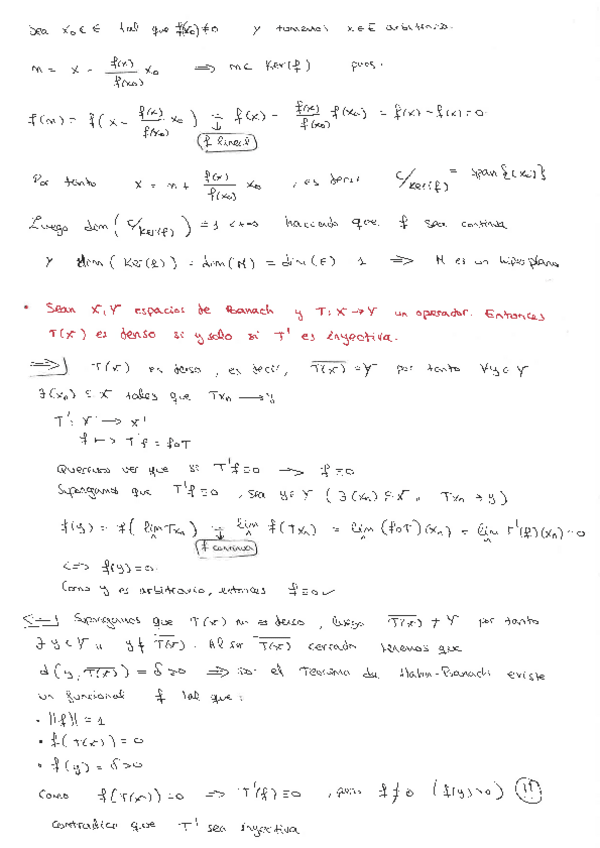 Sea x₀ ∈ E tal que f(x₀) ≠ 0 y tomemos x ∈ E arbitrario.
m = x - f(x)/f(x₀) x₀ ⟹ m ∈ Ker(f) pues.
f(m) = f(x - f(x)/f(x₀) x₀) = f(x) - f(x)/f(x₀) f(x₀) = f(x) - f(x) = 0
f lineal
Por tanto x = m + f(x)/f(x₀) x₀, es decir E/Ker(f) = span{(x₀)}
Luego dim(E/Ker(f)) = 1 <+∞ haciendo que f sea continua
y dim(Ker(f)) = dim(M) = dim(E) 1 ⟹ M es un hiperplano
• Sean X, Y espacios de Banach y T: X → Y un operador. Entonces
T(X) es denso si y solo si T' es inyectiva.
⟹] T(X) es denso, es decir, T(X)‾ = Y por tanto ∀y ∈ Y
∃(xₙ) ⊆ X tales que Txₙ → y
T': Y' → X'
f ↦ T'f = f∘T
Queremos ver que si T'f ≡ 0 → f ≡ 0
Supongamos que T'f ≡ 0, sea y ∈ Y (∃(xₙ) ⊆ X Txₙ → y)
f(y) = f(lim Txₙ) = lim f(Txₙ) = lim (f∘T)(xₙ) = lim T'(f)(xₙ) = 0
f continua
<=> f(y) = 0
Como y es arbitrario, entonces f ≡ 0 ✓
<=] Supongamos que T(X) no es denso, luego T(X)‾ ≠ Y por tanto
∃ y ∈ Y y ∉ T(X)‾. Al ser T(X)‾ cerrado tenemos que
d(y, T(X)‾) = δ > 0 ⟹ por el Teorema de Hahn-Banach existe
un funcional f tal que:
• ||f|| = 1
• f(T(X)) = 0
• f(y) = δ > 0
Como f(T(X)) = 0 ⟹ T'(f) ≡ 0, pero f ≠ 0 (f(y) > 0) !!
contradice que T' sea inyectiva